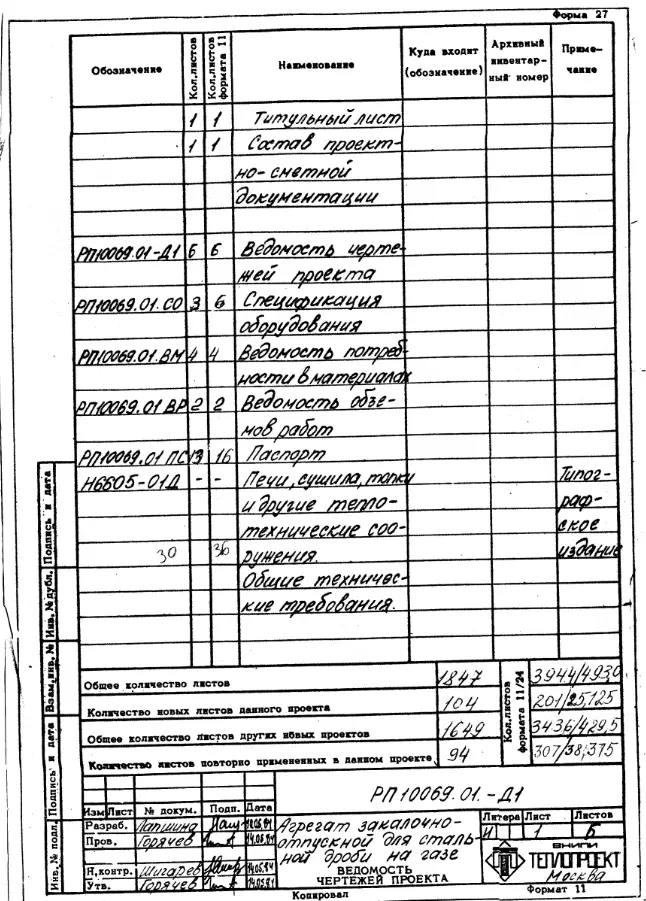 Форма 27
Обозначение Кол.листов Кол.листов формата 11 Наименование Куда входит (обозначение) Архивный инвентарный номер Примечание
1 1 Титульный лист
1 1 Состав проект-
но-сметной
документации
РП10069.01-Д1 6 6 Ведомость черте-
жей проекта
РП10069.01.СО 3 6 Спецификация
оборудования
РП10069.01.ВМ 4 4 Ведомость потреб-
ности в материалах
РП10069.01 ВР 2 2 Ведомость объе-
мов работ
РП10069.01 ПС 13 16 Паспорт
Н6605-01Д - - Печи, сушила, топки Типог-
и другие тепло- раф-
технические соо- ское
30 36 ружения. издание
Общие техничес-
кие требования.
Общее количество листов 1847 Кол.листов формата 11/24 3944/4930
Количество новых листов данного проекта 104 201/25,125
Общее количество листов других новых проектов 1649 3436/429,5
Количество листов повторно примененных в данном проекте 94 307/38,375
Инв.№ подл. Подпись и дата Взам.инв.№ Инв.№ дубл. Подпись и дата
РП10069.01.-Д1
Изм Лист № докум. Подп. Дата
Разраб. Лапшина
Пров. Горячев
Н.контр. Шигарев
Утв. Горячев
Агрегат закалочно-
отпускной для сталь-
ной дроби на газе
ВЕДОМОСТЬ
ЧЕРТЕЖЕЙ ПРОЕКТА
Литера Лист Листов
И 1 6
ВНИПИ
ТЕПЛОПРОЕКТ
Москва
Копировал Формат 11